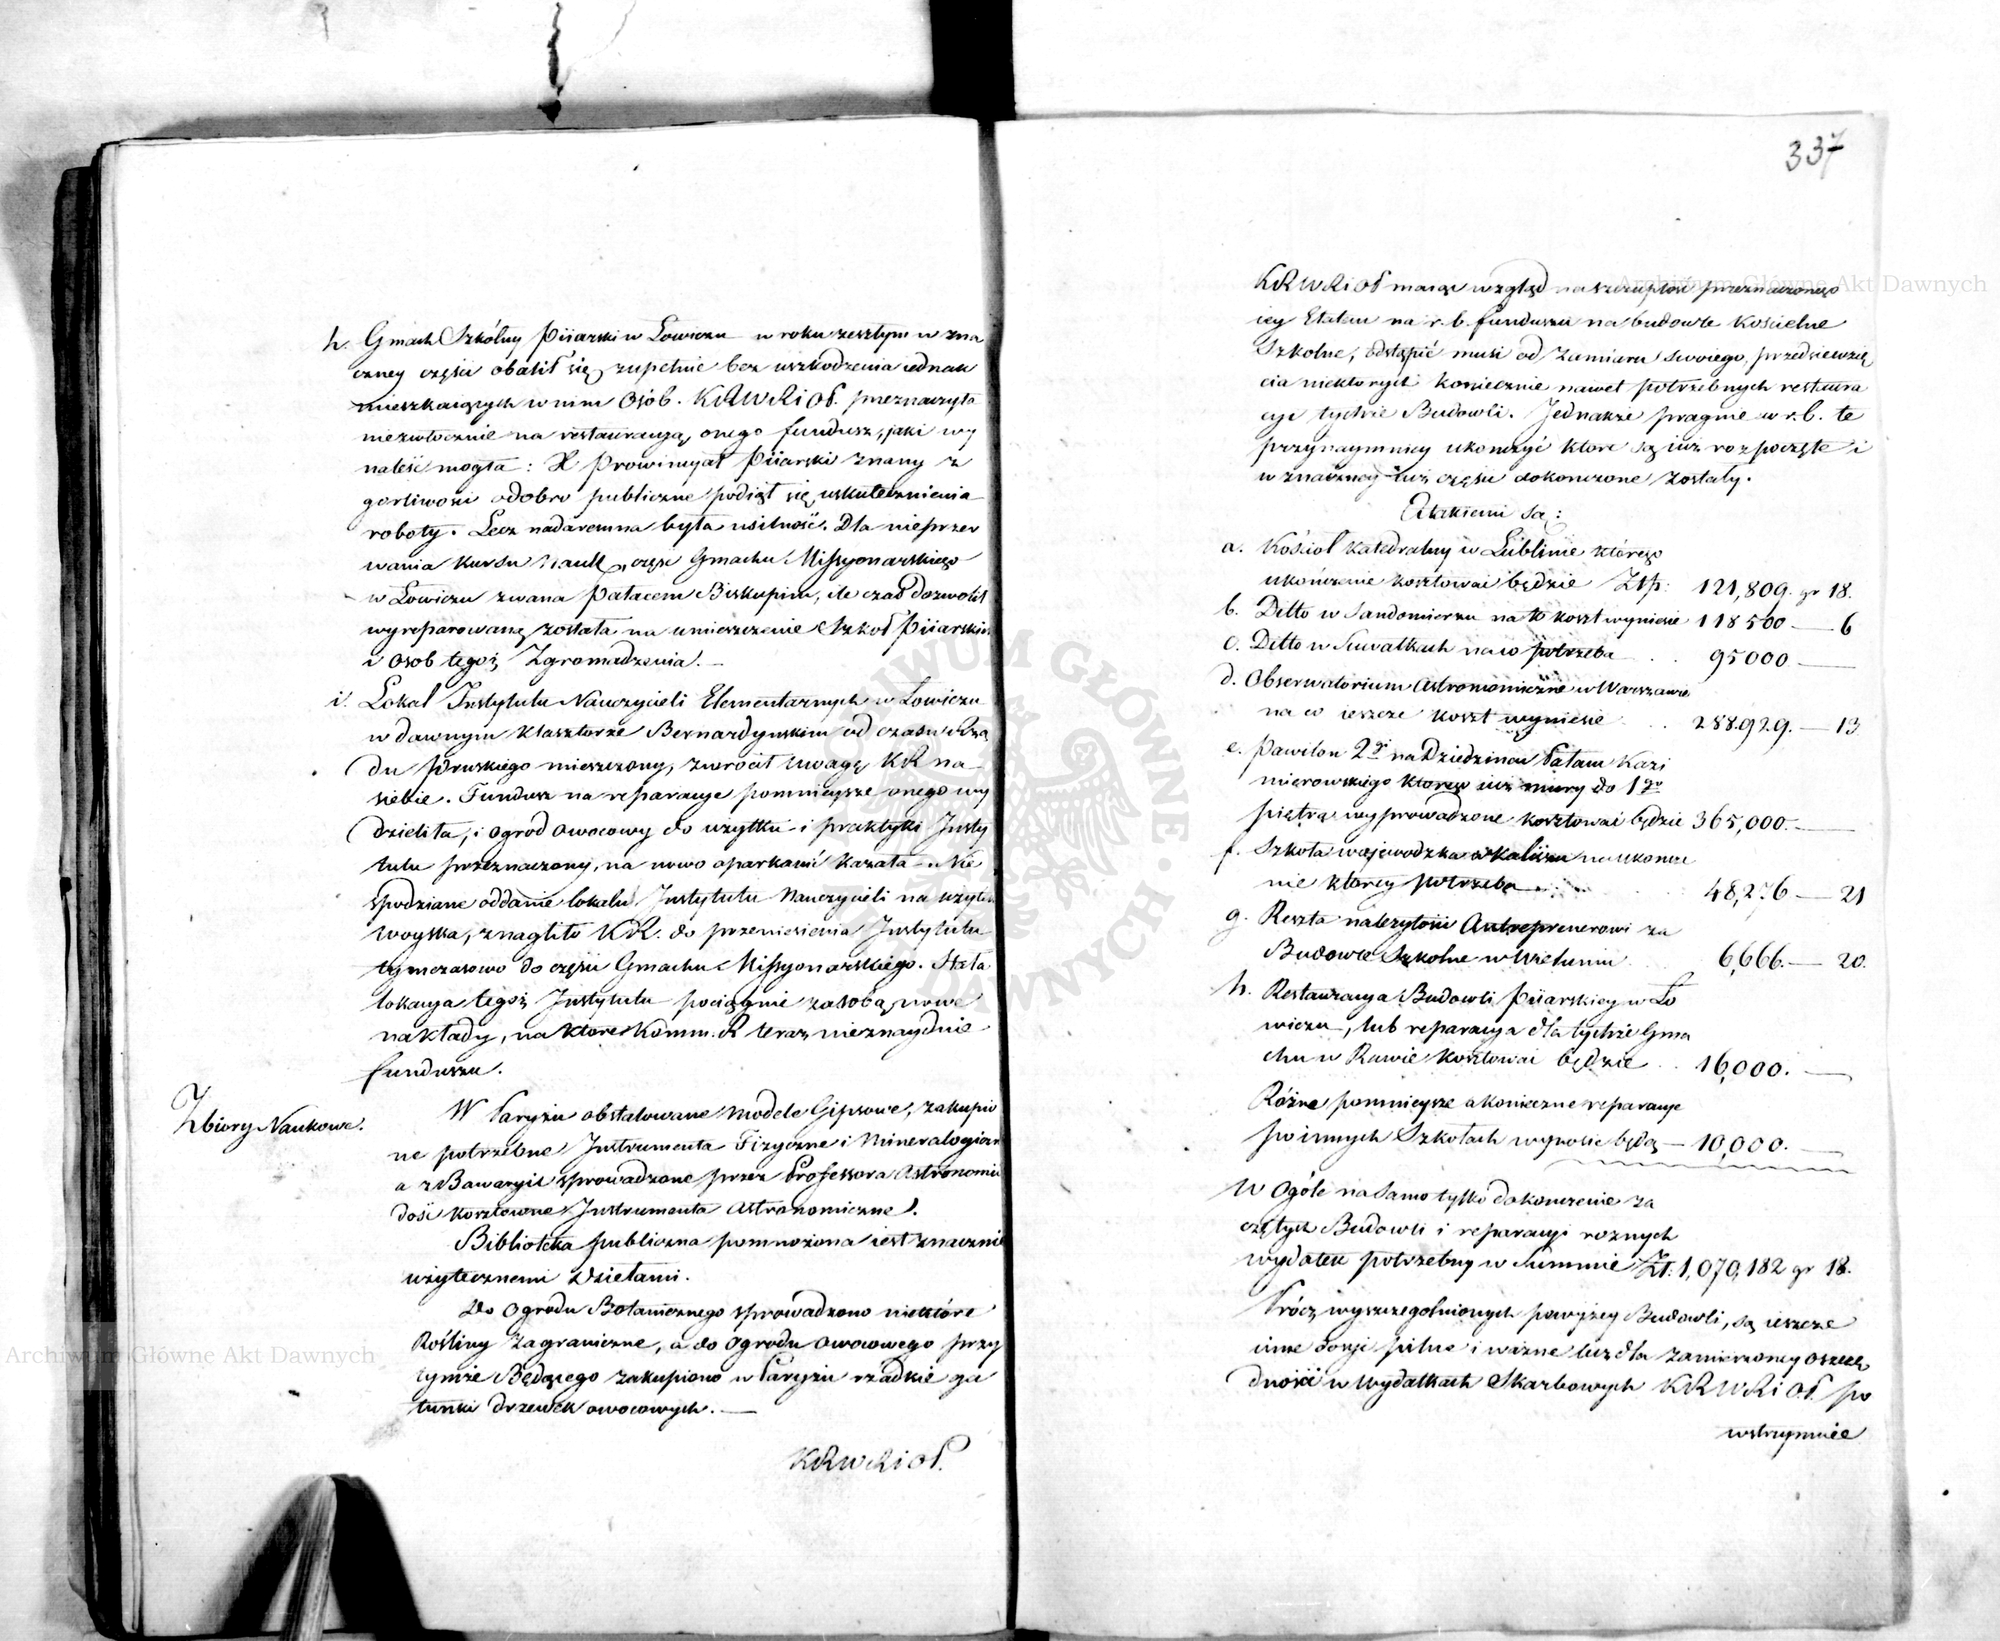 h. Gmach Szkólny Piiarski w Łowiczu w roku zeszłym w zna
czney części obalił się, zupełnie bez uszkodzenia iednak
mieszkaiących w nim Osób. KRWRiOP. przeznaczyła
niezwłocznie na restauracyą onego fundusz, jaki wy
naleść mogła: X Prowincyał Piiarski znany z
gorliwości o dobro publiczne podiął się uskutecznienia
roboty. Lecz nadaremna była usilność. Dla nieprzer
wania kursu Nauk, część Gmachu Missyonarskiego
w Łowiczu zwana Pałacem Biskupim, ile czas dozwolił
wyreparowaną została na umieszczenie Szkoł Piiarskich
i Osob tegoż Zgromadzenia. —
i. Lokal Instytutu Nauczycieli Elementarnych w Łowiczu
w dawnym Klasztorze Bernardyńskim od czasu Rzą
du Pruskiego mieszczony, zwrócił uwagę KR na
siebie. Fundusz na reparacye pomnieysze onego wy
dzieliła, i ogród owocowy do użytku i praktyki Insty
tutu przeznaczony, na nowo oparkanić kazała. Nie
spodziane oddanie lokalu Instytutu Nauczycieli na użytek
woyska, znagliło KR. do przeniesienia Instytutu
tymczasowo do części Gmachu Missyonarskiego. Stała
lokacya tegoż Instytutu pociągnie za sobą nowe
nakłady, na które Komm. R teraz nieznayduie
funduszu.
Zbiory Naukowe.
W Paryżu obstalowane modele Gipsowe, zakupio
ne potrzebne Instrumenta Fizyczne i Mineralogiczne
a z Bawaryi sprowadzone przez Professora Astronomii
dość kosztowne Instrumenta Astronomiczne.
Biblioteka publiczna pomnożona iest znacznie
użytecznemi Dziełami.
Do Ogrodu Botanicznego sprowadzono niektóre
Rośliny Zagraniczne, a do Ogrodu Owocowego przy
tymże Będącego zakupiono w Paryżu rzadkie ga
tunki drzewek owocowych. —
KRWRiOP.
337
KRWRiOP maiąc wzgląd na szczupłość przeznaczonego
iey Etatem na r. b. funduszu na budowle Kościelne
Szkolne, odstąpić musi od zamiaru swoiego, przedsięwzię
cia niektórych koniecznie nawet potrzebnych restaura
cyi tychże Budowli. Jednakże pragnie w r. b. te
przynaymniey ukończyć które są iuż rozpoczęte i
w znaczney iuż części dokończone zostały.
A takiemi są:
a. Kościoł Katedralny w Lublinie którego
ukończenie kosztować będzie Złp: 121,809. gr 18.
b. Ditto w Sandomierzu na to koszt wyniesie 118500 — 6
c. Ditto w Suwałkach na co potrzeba . . 95000 —
d. Obserwatorium Astronomiczne w Warszawie
na co ieszcze koszt wyniesie . . 288.929. — 13
e. Pawilon 2gi na Dziedzińcu Pałacu Kazi
mierowskiego którego iuż mury do 1go
piętra wyprowadzone kosztować będzie 365,000. —
f. Szkoła woiewódzka w Kaliszu na ukończe
nie którey potrzeba . . . 48,276 — 21
g. Reszta należytości Antreprenerowi za
Budowle Szkolne w Wieluniu 6,666. — 20.
h. Restauracya Budowli Piiarskiey w Ło
wiczu, lub reparacya dla tychże Gma
chu w Rawie kosztować będzie . . 16,000. —
Różne pomnieysze a konieczne reparacye
po innych Szkołach wynosić będą — 10,000. —
W Ogóle na samo tylko dokończenie za
czętych Budowli i reparacyi rożnych
wydatek potrzebny w Summie Zł: 1,070,182 gr 18.
Prócz wyszczegolnionych powyżey Budowli, są ieszcze
inne dosyć pilne i ważne lecz dla zamierzoney oszczę
dności w Wydatkach Skarbowych KRWRiOP po
wstrzymuie
Archiwum Główne Akt Dawnych
Archiwum Główne Akt Dawnych
ARCHIWUM GŁÓWNE AKT DAWNYCH